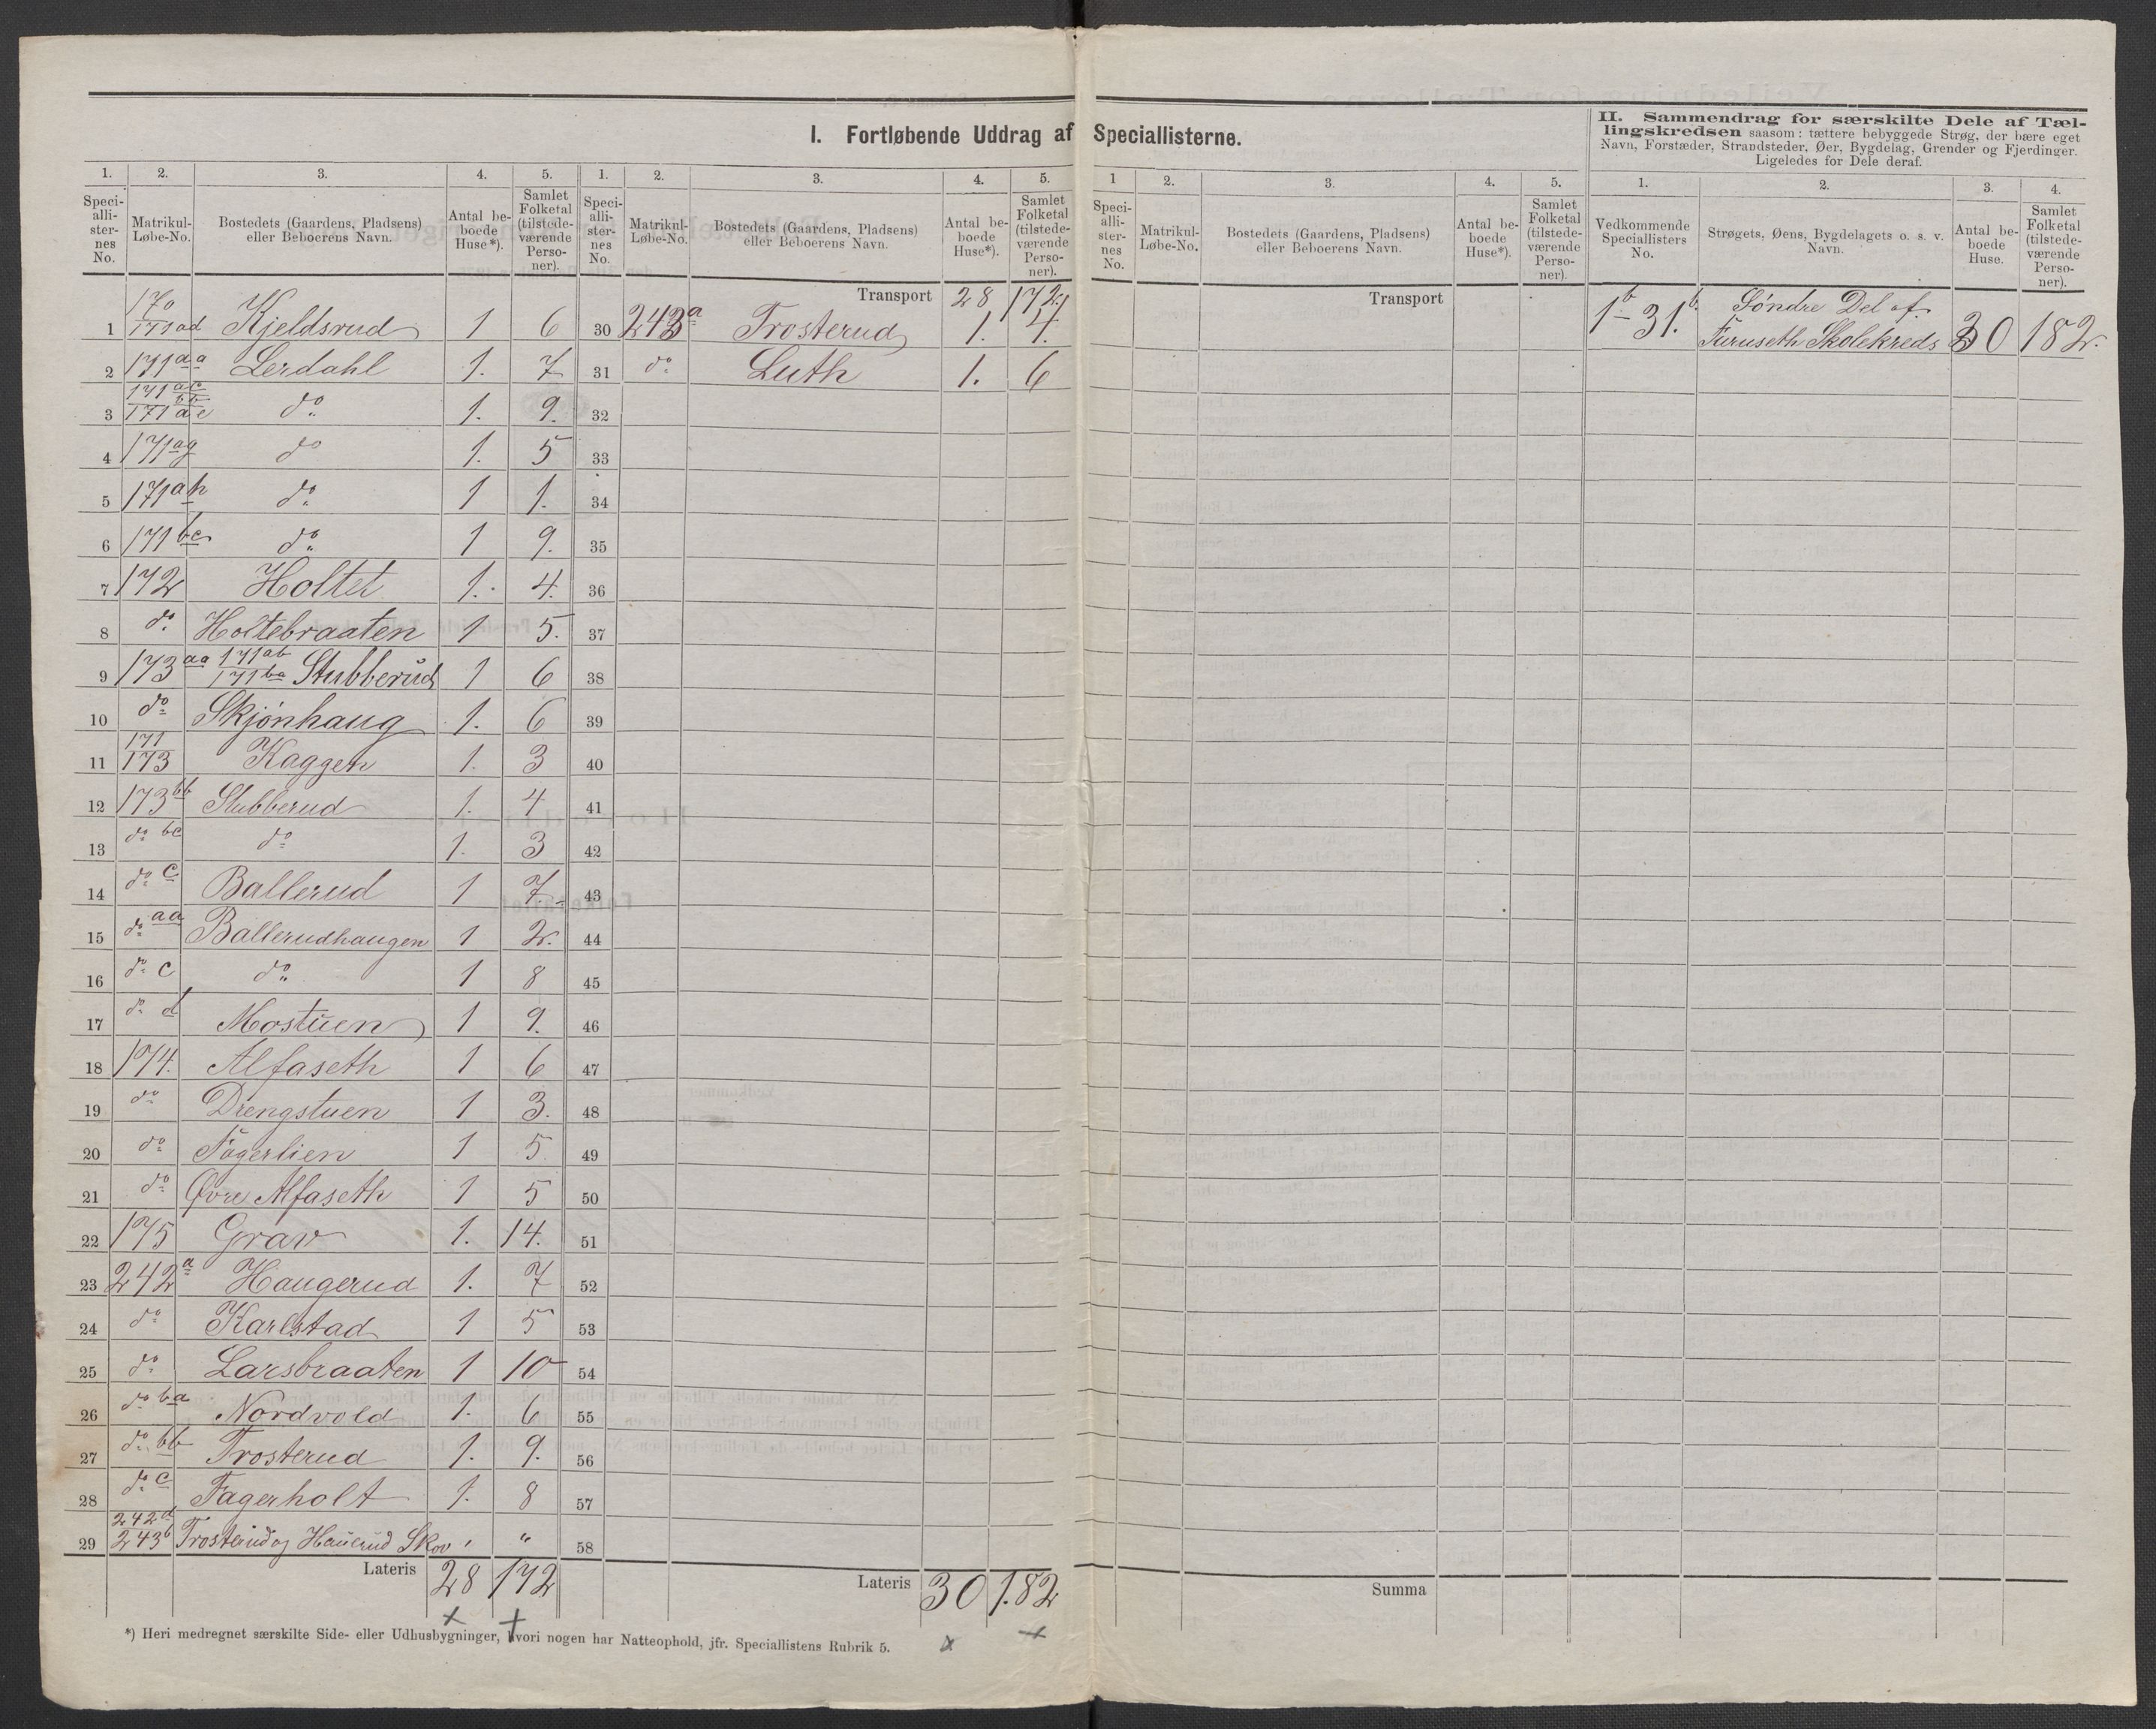 I. Fortløbende Uddrag af Speciallisterne.
1. 2. 3. 4. 5.
Speci-alli-ster-nes No. Matrikul-Løbe-No. Bostedets (Gaardens, Pladsens) eller Beboerens Navn. Antal be-boede Huse*). Samlet Folketal (tilstede-værende Perso-ner).
1 170/171ad Kjeldsrud 1 6
2 171aa Lerdahl 1. 7
3 171ac 171ae do 1. 9.
4 171ag do 1. 5
5 171ah do 1 1.
6 171bc do 1 9.
7 172 Holtet 1. 4.
8 do Holtebraaten 1 5.
9 173aa 171ab 171ba Stubberud 1 6
10 do Skjønhaug 1. 6
11 171/173 Kaggen 1. 3
12 173bb Stubberud 1. 4
13 do bc do 1. 3
14 do c Ballerud 1 7.
15 do aa Ballerudhaugen 1 2.
16 do c do 1 8
17 do d Mostuen 1 9.
18 174. Alfaseth 1 6
19 do Drengstuen 1 3.
20 do Fagerlien 1 5
21 do Øvre Alfaseth 1 5
22 175 Grav 1. 14.
23 242a Haugerud 1. 7
24 do Karlstad 1 5
25 do Larsbraaten 1 10
26 do ba Nordvold 1. 6
27 do bb Trosterud 1. 9.
28 do c Fagerholt 1. 8
29 242d 243b Trosterud og Hauerud Skov " "
Lateris 28 172
1. 2. 3. 4. 5.
Speci-alli-ster-nes No. Matrikul-Løbe-No. Bostedets (Gaardens, Pladsens) eller Beboerens Navn. Antal be-boede Huse*). Samlet Folketal (tilstede-værende Perso-ner).
Transport 28 172
30 243a Trosterud 1. 4.
31 do Luth 1. 6
32
33
34
35
36
37
38
39
40
41
42
43
44
45
46
47
48
49
50
51
52
53
54
55
56
57
58
Lateris 30 182
*) Heri medregnet særskilte Side- eller Udhusbygninger, hvori nogen har Natteophold, jfr. Speciallistens Rubrik 5.
1 2. 3. 4. 5.
Speci-alli-ster-nes No. Matrikul-Løbe-No. Bostedets (Gaardens, Pladsens) eller Beboerens Navn. Antal be-boede Huse*). Samlet Folketal (tilstede-værende Perso-ner).
Transport
Summa
II. Sammendrag for særskilte Dele af Tæl-
lingskredsen saasom: tættere bebyggede Strøg, der bære eget
Navn, Forstæder, Strandsteder, Øer, Bygdelag, Grender og Fjerdinger.
Ligeledes for Dele deraf.
1. 2. 3. 4.
Vedkommende Speciallisters No. Strøgets, Øens, Bygdelagets o. s. v. Navn. Antal be-boede Huse. Samlet Folketal (tilstede-værende Perso-ner).
1b - 31.b Søndre Del af
Furuseth Skolekreds 30 182.